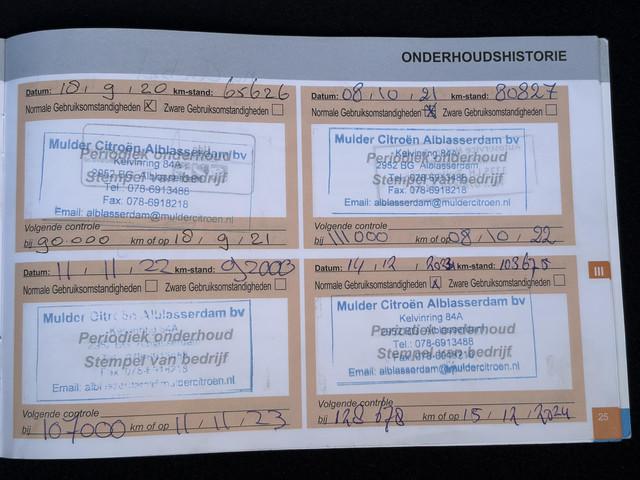 ONDERHOUDSHISTORIE
Datum: 18, 9, 20 km-stand: 65626
Normale Gebruiksomstandigheden X Zware Gebruiksomstandigheden
Mulder Citroën Alblasserdam bv
Periodiek onderhoud
Kelvinring 84A
2952 BG Alblasserdam
Stempel van bedrijf
Tel.: 078-6913488
Fax: 078-6918218
Email: alblasserdam@muldercitroen.nl
Volgende controle
bij 90.000 km of op 18, 9, 21
Datum: 08, 10, 21 km-stand: 80827
Normale Gebruiksomstandigheden X Zware Gebruiksomstandigheden
Mulder Citroën Alblasserdam bv
Kelvinring 84A
Periodiek onderhoud
2952 BG Alblasserdam
Stempel van bedrijf
Tel.: 078-6913488
Fax: 078-6918218
Email: alblasserdam@muldercitroen.nl
Volgende controle
bij 111000 km of op 08, 10, 22
Datum: 11, 11, 22 km-stand: 92003
Normale Gebruiksomstandigheden Zware Gebruiksomstandigheden
Mulder Citroën Alblasserdam bv
Periodiek onderhoud
Stempel van bedrijf
Fax: 078-6918218
Email: alblasserdam@muldercitroen.nl
Volgende controle
bij 107000 km of op 11, 11, 23
Datum: 14, 12, km-stand: 103675
Normale Gebruiksomstandigheden X Zware Gebruiksomstandigheden
Mulder Citroën Alblasserdam bv
Kelvinring 84A
Periodiek onderhoud
2952 BG Alblasserdam
Tel.: 078-6913488
Stempel van bedrijf
Fax: 078-6918218
Email: alblasserdam@muldercitroen.nl
Volgende controle
bij 128678 km of op 15, 12, 2024
III
25